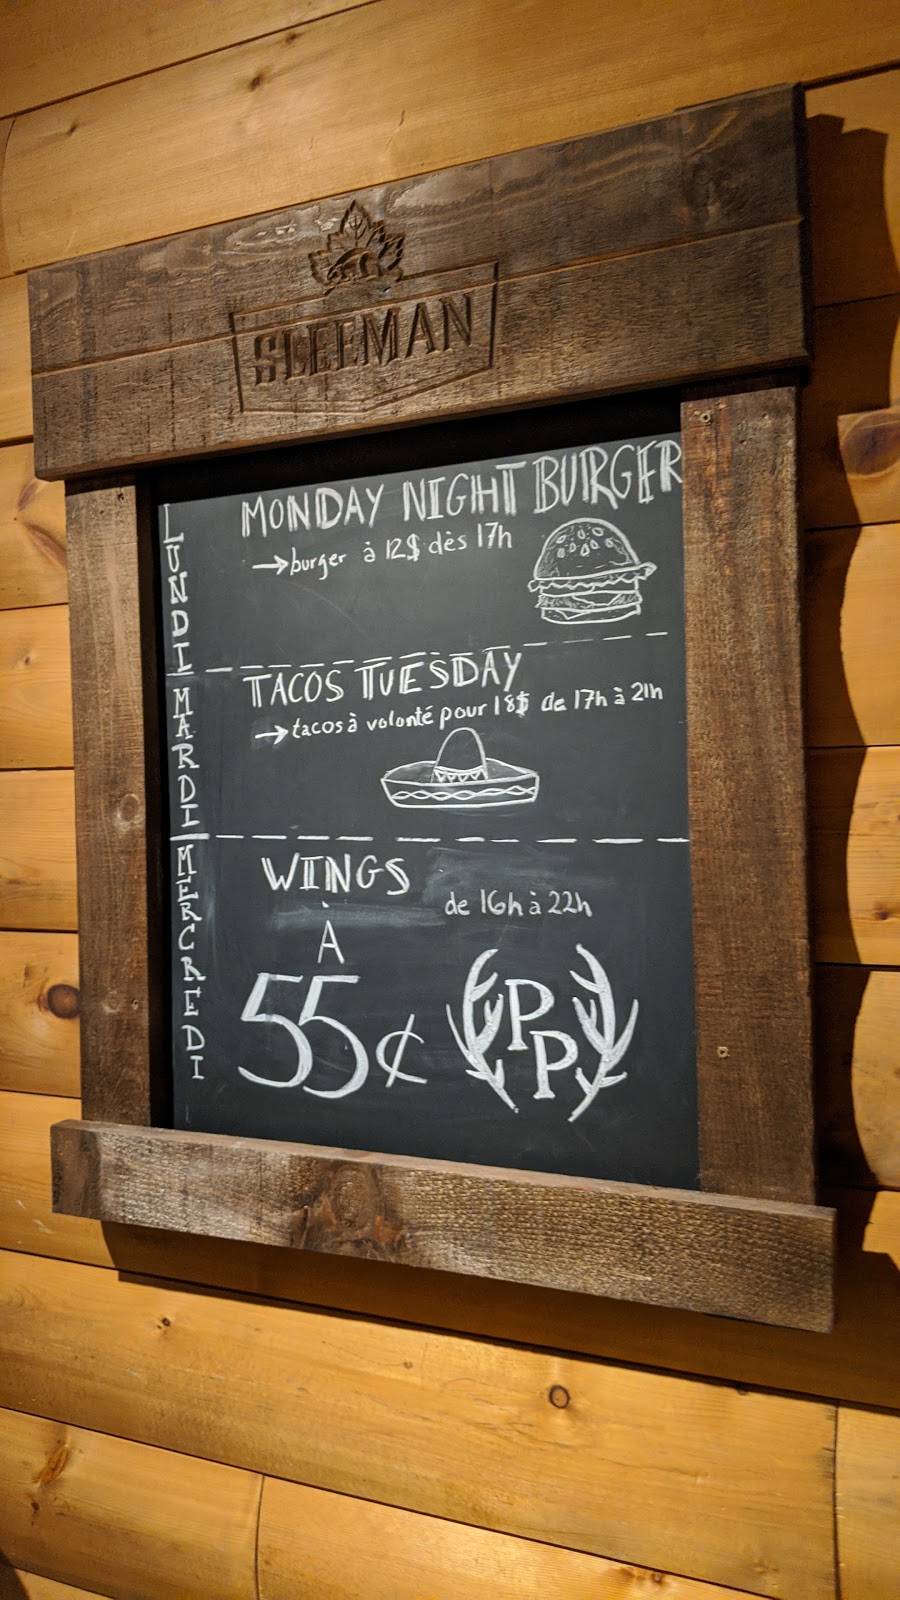 SLEEMAN
LUNDI
MONDAY NIGHT BURGER
→burger à 12$ dès 17h
MARDI
TACOS TUESDAY
→tacos à volonté pour 18$ de 17h à 21h
MERCREDI
WINGS
de 16h à 22h
À
55¢
PP